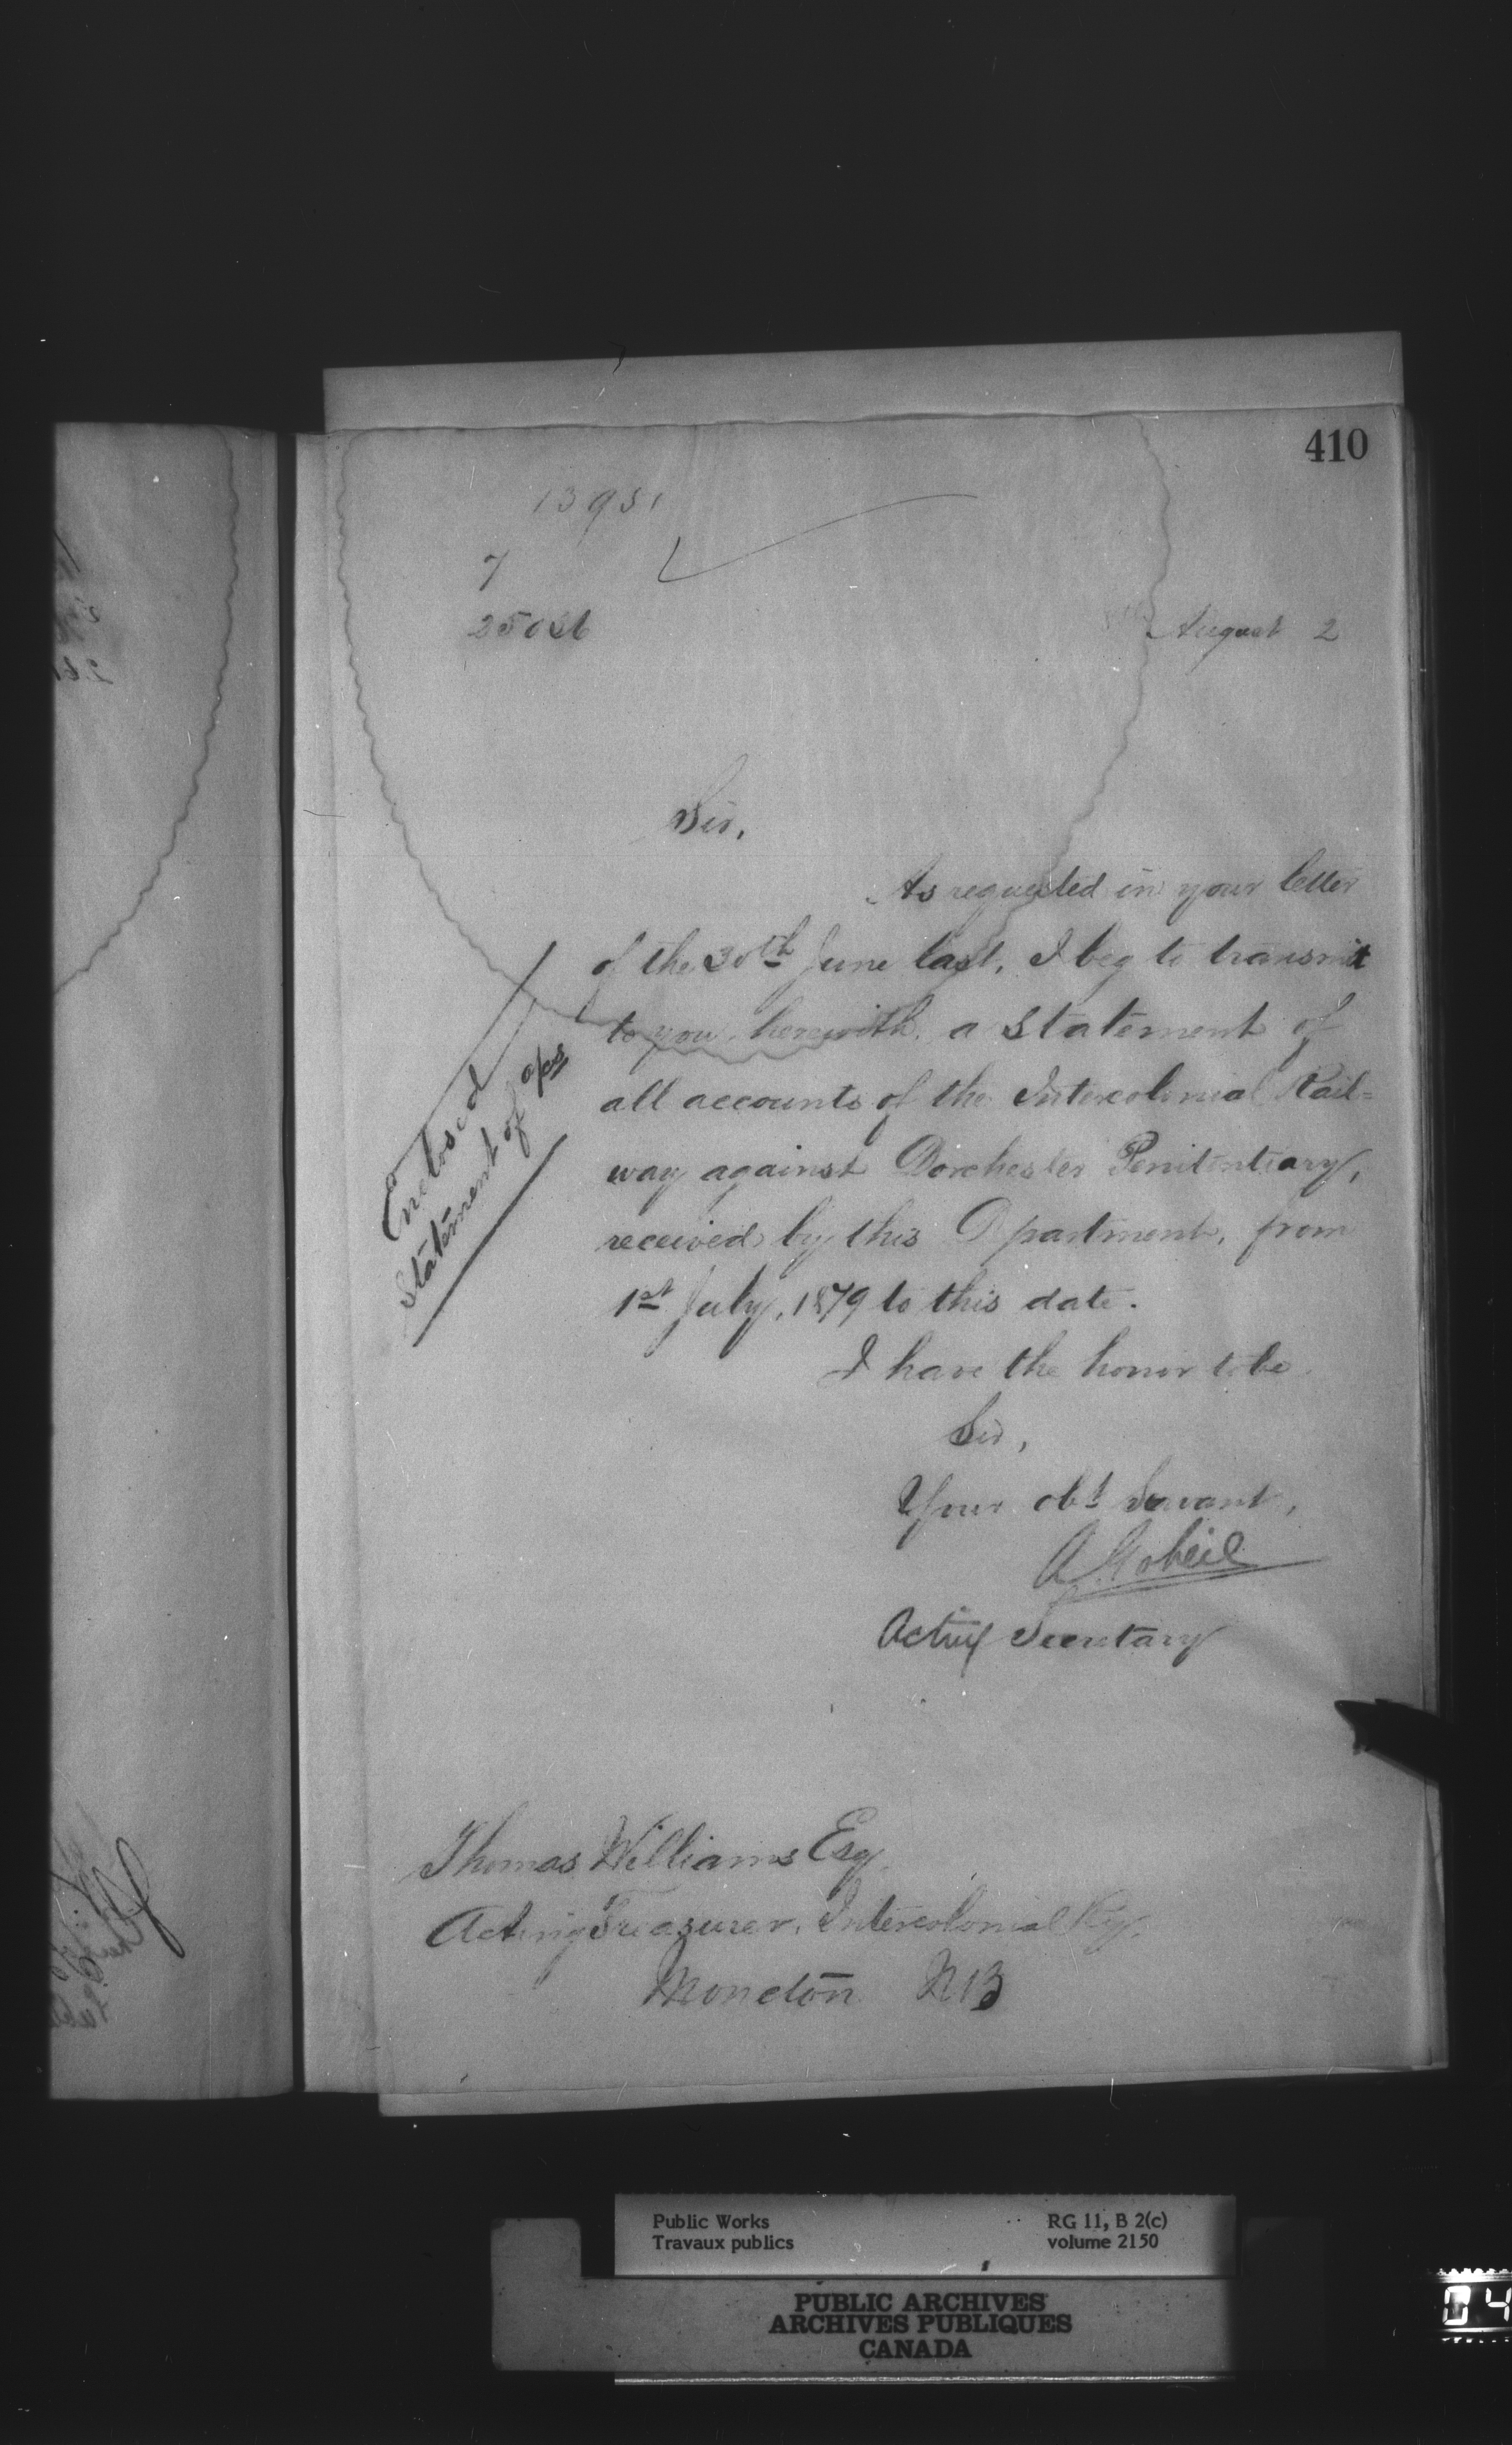 410
13951
7
25086
August 2
Sir,
As requested in your letter
of the 30th June last, I beg to transmit
to you herewith, a Statement of
all accounts of the Intercolonial Rail=
way against Dorchester Penitentiary,
received by this Dpartment, from
1st July, 1879 to this date.
Enclosed
Statement of a/cs
I have the honor to be
Sir,
Your obt Servant,
A Gobeil
Acting Secretary
Thomas Williams Esq
Acting Treasurer, Intercolonial Ry.
Moncton NB
Public Works
Travaux publics
RG 11, B 2(c)
volume 2150
PUBLIC ARCHIVES
ARCHIVES PUBLIQUES
CANADA
04